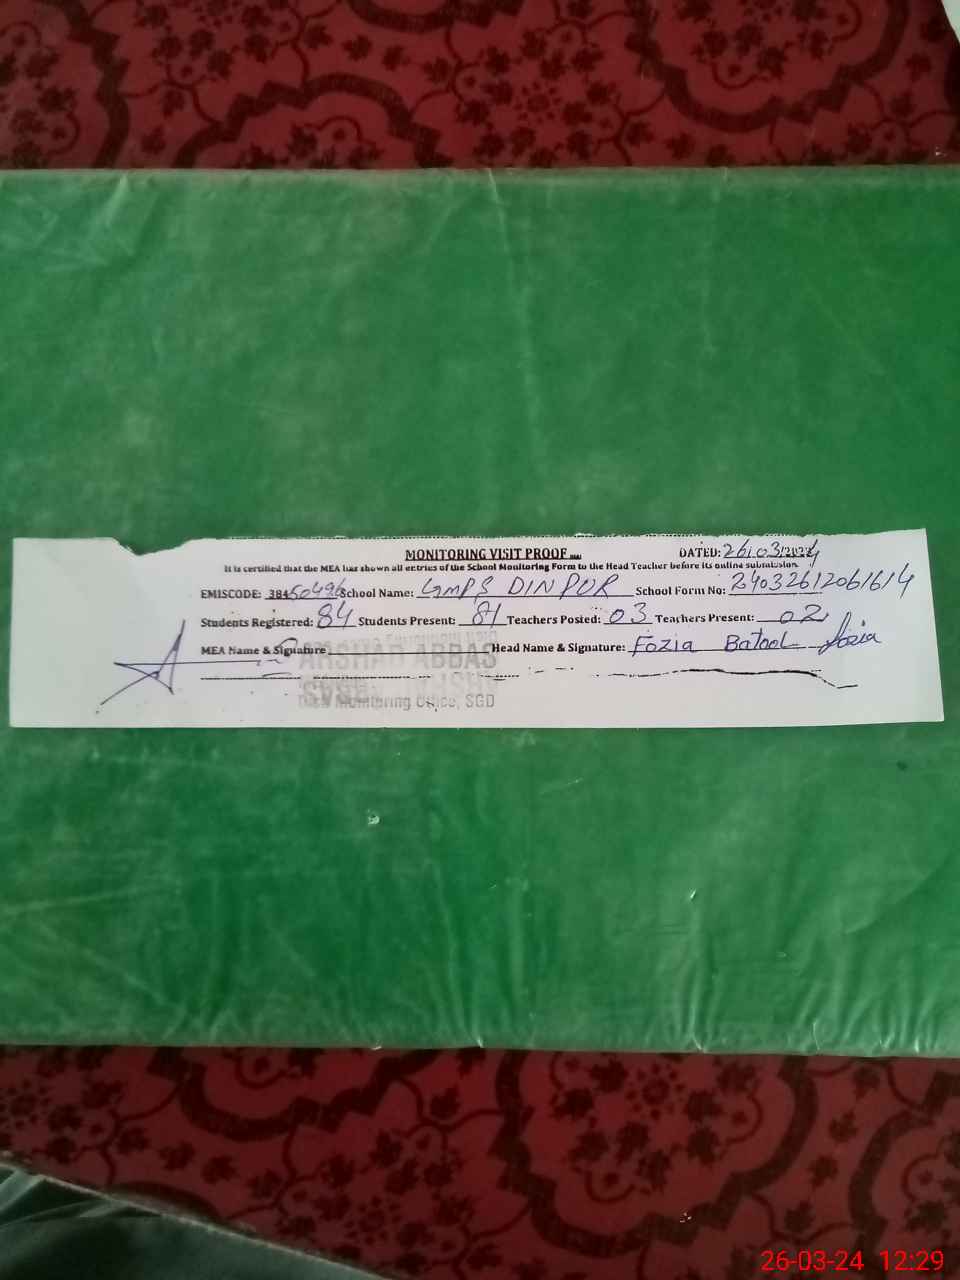 MONITORING VISIT PROOF DATED: 26.03.2024
It is certified that the MEA has shown all entries of the School Monitoring Form to the Head Teacher before its online submission.
EMISCODE: 38450496 School Name: GMPS DIN PUR School Form No: 24032612061614
Students Registered: 84 Students Present: 81 Teachers Posted: 03 Teachers Present: 02
MEA Name & Signature ARSHAD ABBAS Head Name & Signature: Fozia Batool Fozia
Monitoring Office, SGD
26-03-24 12:29